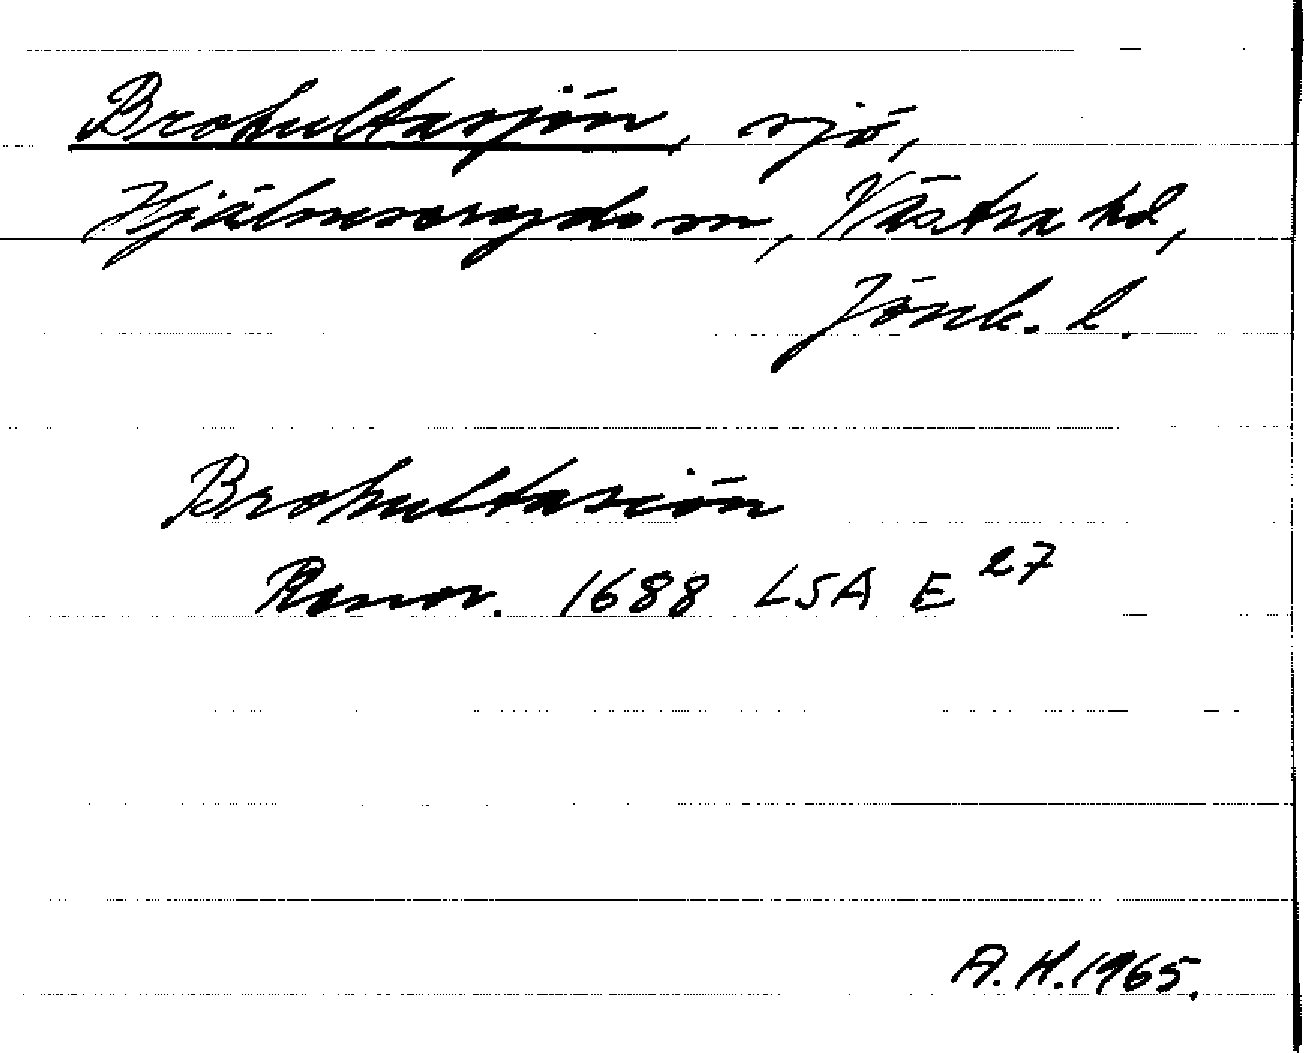 Brohultasjön, sjö,
Hjälmseryds sn, Västra hd,
Jönk. l.
Brohultasiön
1688 LSA E 27
A.H. 1965.